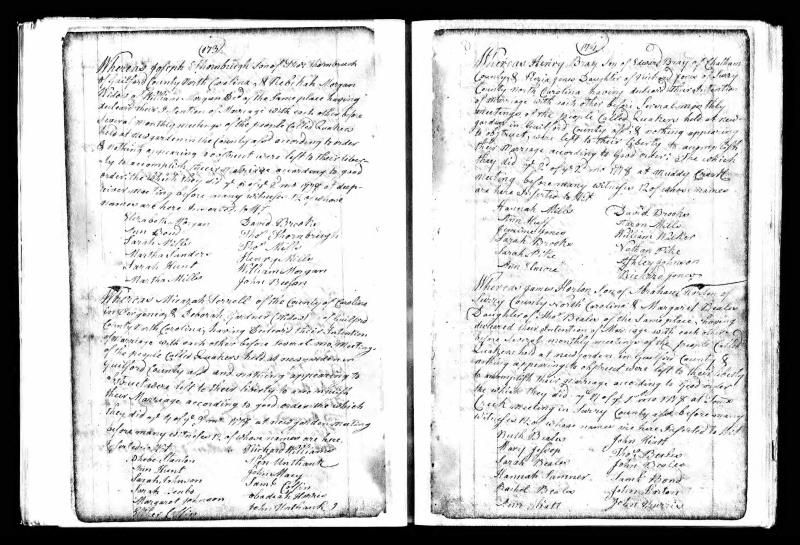 173
Whereas Joseph Thornbrugh Son of Thos Thornbrugh
of Guilford County North Carolina, & Rebekah Morgan
Widow of William Morgan Decd of the Same place having
declared their Intention of Marriage with each other before
Several monthly meetings of the people Called Quakers
held at newgarden in the County afsd according to order
& nothing appearing to obstruct were left to their liber
ty to accomplish their Marriage according to good
order: the which they did ye of ye 2 mo 1778 at deep
river meeting before many witnesses 12 of whose
names are here Inserted to Wit
Elizabeth Morgan David Brooks
Ann Bond Thos Thornbrugh
Sarah Mills Thos Mills
Martha Sanders Henry Mills
Sarah Hunt William Morgan
Martha Mills John Beeson
Whereas Micajah Terrell of the County of Caroline
in Virginia & Deborah Gardner (Widow) of Guilford
County North Carolina, having Declared their Intention
of Marriage with each other before Several mo. Meetings
of the people Called Quakers held at newgarden in
Guilford County afsd and nothing appearing to
obstruct were left to their liberty to accomplish
their Marriage according to good order the which
they did ye of ye mo 1778 at new garden meeting
before many witnesses 12 of whose names are here
Inserted to Wit Richard Williams
Phebe Stanton
Ann Hunt John Macy
Sarah Johnson Saml Coffin
Sarah Obadiah Harris
Margaret Johnson John Unthank
174
Whereas Henry Bray Son of Edward Bray of Chatham
County & Keziah Jones Daughter of Jones of Surry
County North Carolina having declared their Intention
of Marriage with each other before Several monthly
meetings of the people Called Quakers held at new
garden in Guilford County afsd & nothing appearing
to obstruct, were left to their liberty to accomplish
their Marriage according to Good order: The which
they did ye 2d of ye 2d mo 1778 at Muddy Creek
meeting before many witnesses 12 of whose names
are here Inserted to Wit
Hannah Mills David Brooks
Ann Huff Aaron Mills
Jemima Jones William Walker
Sarah Brooks Nathan Pike
Sarah Pike Ashley Johnson
Ann Richard Jones
Whereas James Horton Son of Abraham Horton of
Surry County North Carolina & Margaret Beales
Daughter of Thos Beales of the Same place; having
declared their Intention of Marriage with each other
before Several monthly meetings of the people Called
Quakers held at newgarden in Guilford County &
nothing appearing to obstruct were left to their liberty
to accomplish their Marriage according to Good order
the which they did ye of ye mo 1778 at
Creek meeting in Surry County afsd before many
witnesses 12 of whose names are here Inserted to Wit
Ruth Beales John Hiatt
Mary Jessop Thos Beales
Sarah Beales John Beales
Hannah Tanner Saml Bond
Rachel Beales John Horton
Ann Hiatt John Burris